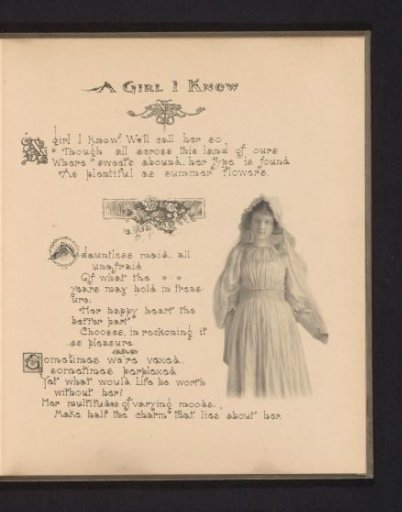 A GIRL I KNOW
A girl I know! We'll call her so
Though all across this land of ours
Where sweets abound, her type is found
As plentiful as summer flowers.
A dauntless maid, all
unafraid
Of what the
years may hold in treas-
ure.
Her happy heart the
better part
Chooses, in reckoning it
as pleasure.
Sometimes we're vexed,
sometimes perplexed
Yet what would Life be worth
without her!
Her multitudes of varying moods,
Make half the charm that lies about her.